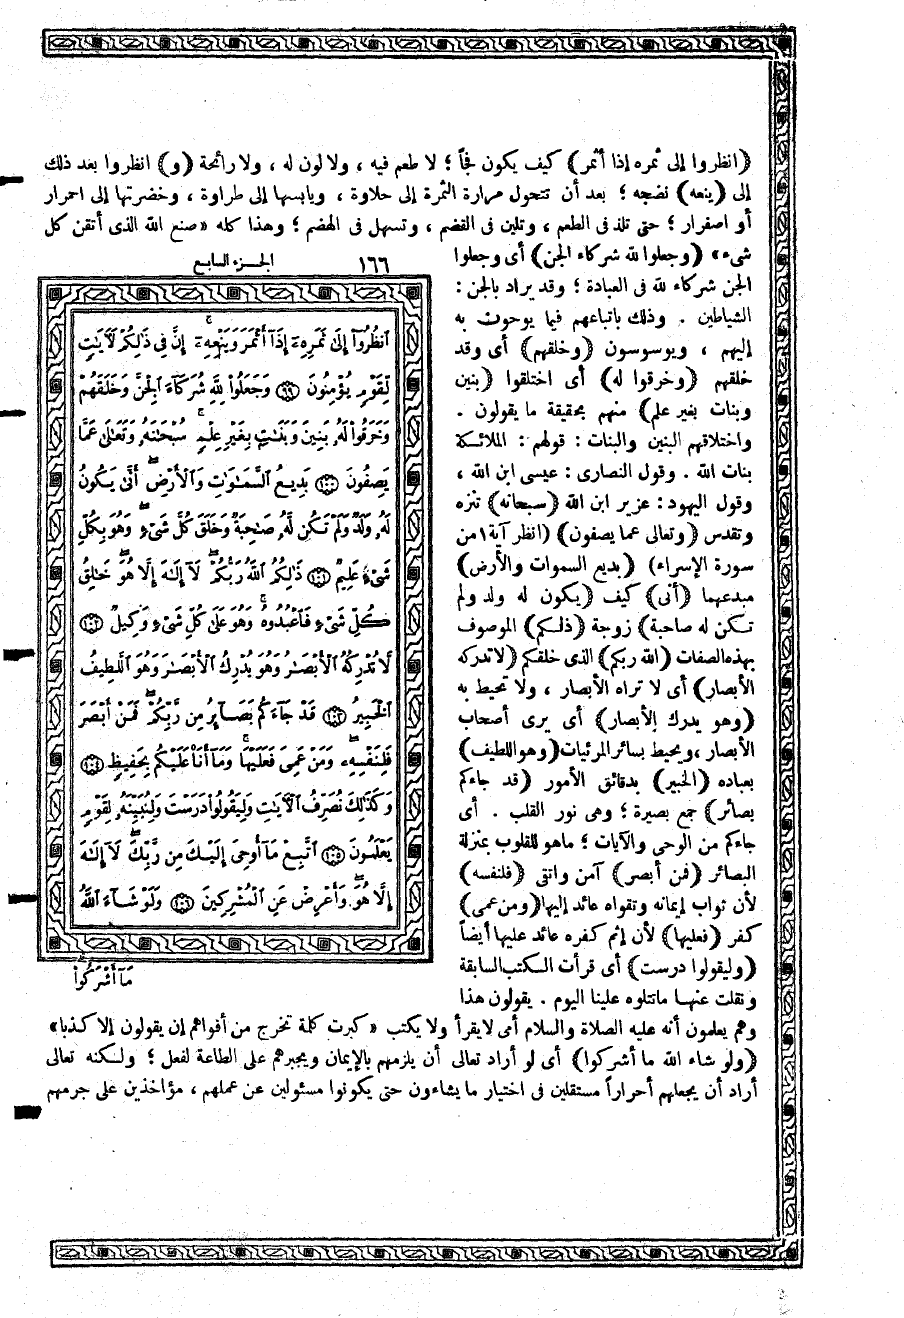 (انظروا إلى ثمره إذا أثمر) كيف يكون فجاً ؛ لا طعم فيه ، ولا لون له ، ولا رائحة (و) انظروا بعد ذلك
إلى (ينعه) نضجه ؛ بعد أن تتحول مرارة الثمرة إلى حلاوة ، ويابسها إلى طراوة ، وخضرتها إلى احمرار
أو اصفرار ؛ حتى تلذ فى الطعم ، وتلين فى القضم ، وتسهل فى الهضم ؛ وهذا كله «صنع الله الذى أتقن كل
شىء» (وجعلوا لله شركاء الجن) أى وجعلوا
الجن شركاء لله فى العبادة ؛ وقد يراد بالجن :
الشياطين . وذلك باتباعهم فيما يوحون به
إليهم ، ويوسوسون (وخلقهم) أى وقد
خلقهم (وخرقوا له) أى اختلقوا (بنين
وبنات بغير علم) منهم بحقيقة ما يقولون .
واختلاقهم البنين والبنات : قولهم : الملائكة
بنات الله . وقول النصارى : عيسى ابن الله ،
وقول اليهود : عزير ابن الله (سبحانه) تنزه
وتقدس (وتعالى عما يصفون) (انظر آية ١ من
سورة الإسراء) (بديع السموات والأرض)
مبدعهما (أنى) كيف (يكون له ولد ولم
تكن له صاحبة) زوجة (ذلكم) الموصوف
بهذه الصفات (الله ربكم) الذى خلقكم (لا تدركه
الأبصار) أى لا تراه الأبصار ، ولا تحيط به
(وهو يدرك الأبصار) أى يرى أصحاب
الأبصار ، ويحيط بسائر المرئيات (وهو اللطيف)
بعباده (الخبير) بدقائق الأمور (قد جاءكم
بصائر) جمع بصيرة ؛ وهى نور القلب . أى
جاءكم من الوحى والآيات ؛ ما هو للقلوب بمنزلة
البصائر (فمن أبصر) آمن واتقى (فلنفسه)
لأن ثواب إيمانه وتقواه عائد إليها (ومن عمى)
كفر (فعليها) لأن إثم كفره عائد عليها أيضاً
(وليقولوا درست) أى قرأت الكتب السابقة
ونقلت عنها ما تتلوه علينا اليوم . يقولون هذا
١٦٦ الجزء السابع
ٱنظُرُوٓا۟ إِلَىٰ ثَمَرِهِۦٓ إِذَآ أَثْمَرَ وَيَنْعِهِۦٓ ۚ إِنَّ فِى ذَٰلِكُمْ لَـَٔايَـٰتٍ
لِّقَوْمٍ يُؤْمِنُونَ ﴿٩٩﴾ وَجَعَلُوا۟ لِلَّهِ شُرَكَآءَ ٱلْجِنَّ وَخَلَقَهُمْ ۖ
وَخَرَقُوا۟ لَهُۥ بَنِينَ وَبَنَـٰتٍۭ بِغَيْرِ عِلْمٍ ۚ سُبْحَـٰنَهُۥ وَتَعَـٰلَىٰ عَمَّا
يَصِفُونَ ﴿١٠٠﴾ بَدِيعُ ٱلسَّمَـٰوَٰتِ وَٱلْأَرْضِ ۖ أَنَّىٰ يَكُونُ
لَهُۥ وَلَدٌ وَلَمْ تَكُن لَّهُۥ صَـٰحِبَةٌ ۖ وَخَلَقَ كُلَّ شَىْءٍ ۖ وَهُوَ بِكُلِّ
شَىْءٍ عَلِيمٌ ﴿١٠١﴾ ذَٰلِكُمُ ٱللَّهُ رَبُّكُمْ ۖ لَآ إِلَـٰهَ إِلَّا هُوَ ۖ خَـٰلِقُ
كُلِّ شَىْءٍ فَٱعْبُدُوهُ ۚ وَهُوَ عَلَىٰ كُلِّ شَىْءٍ وَكِيلٌ ﴿١٠٢﴾
لَّا تُدْرِكُهُ ٱلْأَبْصَـٰرُ وَهُوَ يُدْرِكُ ٱلْأَبْصَـٰرَ ۖ وَهُوَ ٱللَّطِيفُ
ٱلْخَبِيرُ ﴿١٠٣﴾ قَدْ جَآءَكُم بَصَآئِرُ مِن رَّبِّكُمْ ۖ فَمَنْ أَبْصَرَ
فَلِنَفْسِهِۦ ۖ وَمَنْ عَمِىَ فَعَلَيْهَا ۚ وَمَآ أَنَا۠ عَلَيْكُم بِحَفِيظٍ ﴿١٠٤﴾
وَكَذَٰلِكَ نُصَرِّفُ ٱلْـَٔايَـٰتِ وَلِيَقُولُوا۟ دَرَسْتَ وَلِنُبَيِّنَهُۥ لِقَوْمٍ
يَعْلَمُونَ ﴿١٠٥﴾ ٱتَّبِعْ مَآ أُوحِىَ إِلَيْكَ مِن رَّبِّكَ ۖ لَآ إِلَـٰهَ
إِلَّا هُوَ ۖ وَأَعْرِضْ عَنِ ٱلْمُشْرِكِينَ ﴿١٠٦﴾ وَلَوْ شَآءَ ٱللَّهُ
مَآ أَشْرَكُوا۟
وهم يعلمون أنه عليه الصلاة والسلام أى لا يقرأ ولا يكتب «كبرت كلمة تخرج من أفواههم إن يقولون إلا كذبا»
(ولو شاء الله ما أشركوا) أى لو أراد تعالى أن يلزمهم بالإيمان ويجبرهم على الطاعة لفعل ؛ ولكنه تعالى
أراد أن يجعلهم أحراراً مستقلين فى اختيار ما يشاءون حتى يكونوا مسئولين عن عملهم ، مؤاخذين على جرمهم